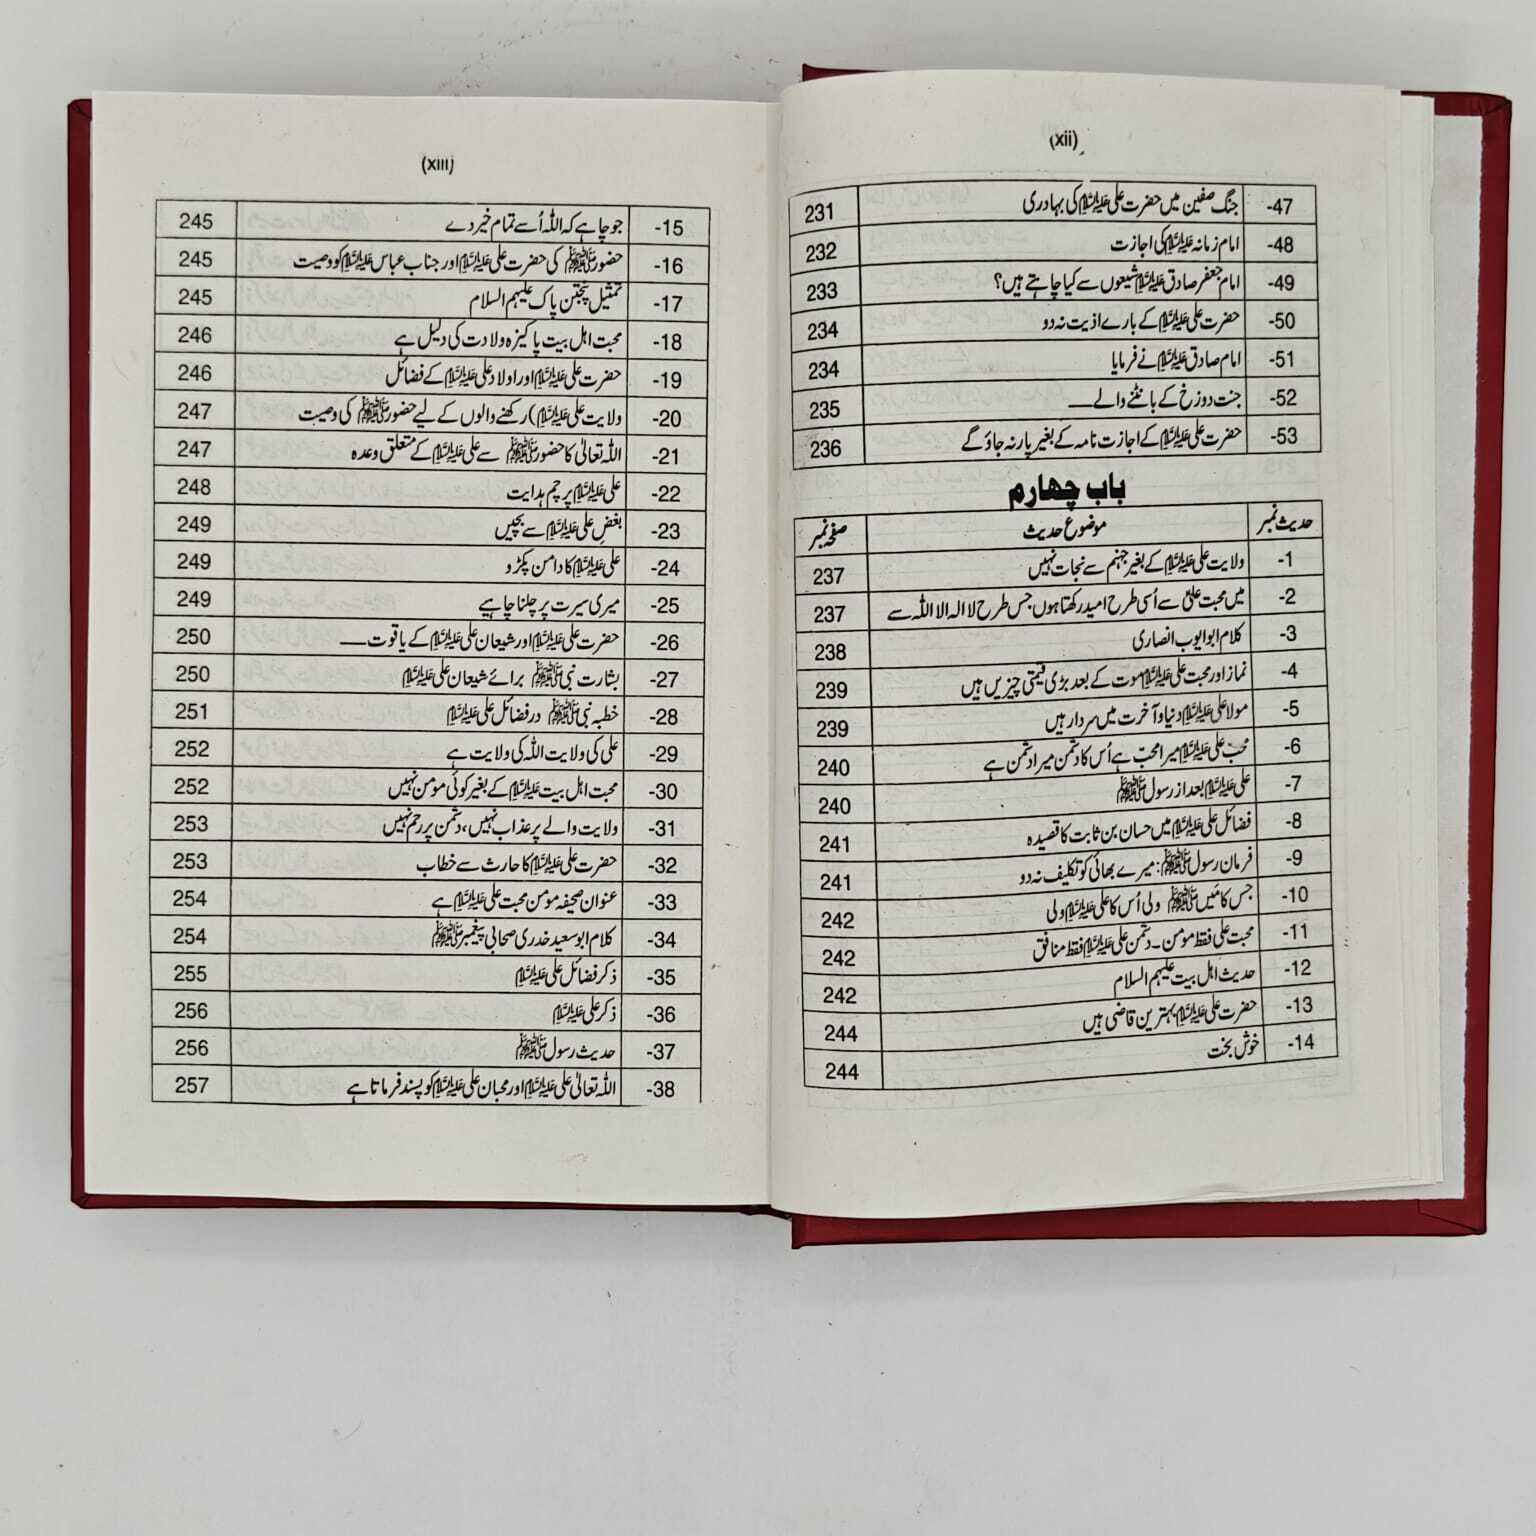 (xii)
47- جنگ صفین میں حضرت علی علیہ السلام کی بہادری 231
48- امام زمانہ علیہ السلام کی اجازت 232
49- امام جعفر صادق علیہ السلام شیعوں سے کیا چاہتے ہیں؟ 233
50- حضرت علی علیہ السلام کے بارے اذیت نہ دو 234
51- امام صادق علیہ السلام نے فرمایا 234
52- جنت دوزخ کے بانٹنے والے۔۔۔ 235
53- حضرت علی علیہ السلام کے اجازت نامہ کے بغیر پار نہ جاؤ گے 236
باب چهارم
حدیث نمبر موضوع حدیث صفحہ نمبر
1- ولایت علی علیہ السلام کے بغیر جہنم سے نجات نہیں 237
2- میں محبت علیؑ سے اُسی طرح امید رکھتا ہوں جس طرح لا الہ الا اللہ سے 237
3- کلام ابو ایوب انصاری 238
4- نماز اور محبت علی علیہ السلام موت کے بعد بڑی قیمتی چیزیں ہیں 239
5- مولا علی علیہ السلام دنیا و آخرت میں سردار ہیں 239
6- محبّ علی علیہ السلام میرا محبّ ہے اُس کا دشمن میرا دشمن ہے 240
7- علی علیہ السلام بعد از رسول ﷺ 240
8- فضائل علی علیہ السلام میں حسان بن ثابت کا قصیدہ 241
9- فرمان رسول ﷺ: میرے بھائی کو تکلیف نہ دو 241
10- جس کا مَیں ﷺ ولی اُس کا علی علیہ السلام ولی 242
11- محبت علی فقط مومن۔ دشمن علی علیہ السلام فقط منافق 242
12- حدیث اہل بیت علیہم السلام 242
13- حضرت علی علیہ السلام بہترین قاضی ہیں 244
14- خوش بخت 244
(xiii)
15- جو چاہے کہ اللہ اُسے تمام خیر دے 245
16- حضور ﷺ کی حضرت علی علیہ السلام اور جناب عباس علیہ السلام کو وصیت 245
17- تمثیل پنجتن پاک علیہم السلام 245
18- محبت اہل بیت پاکیزہ ولادت کی دلیل ہے 246
19- حضرت علی علیہ السلام اور اولاد علی علیہ السلام کے فضائل 246
20- ولایت علی علیہ السلام) رکھنے والوں کے لیے حضور ﷺ کی وصیت 247
21- اللہ تعالیٰ کا حضور ﷺ سے علی علیہ السلام کے متعلق وعدہ 247
22- علی علیہ السلام پرچم ہدایت 248
23- بغض علی علیہ السلام سے بچیں 249
24- علی علیہ السلام کا دامن پکڑو 249
25- میری سیرت پر چلنا چاہیے 249
26- حضرت علی علیہ السلام اور شیعان علی علیہ السلام کے یاقوت۔۔۔ 250
27- بشارت نبی ﷺ برائے شیعان علی علیہ السلام 250
28- خطبہ نبی ﷺ در فضائل علی علیہ السلام 251
29- علی کی ولایت اللہ کی ولایت ہے 252
30- محبت اہل بیت علیہ السلام کے بغیر کوئی مومن نہیں 252
31- ولایت والے پر عذاب نہیں، دشمن پر رحم نہیں 253
32- حضرت علی علیہ السلام کا حارث سے خطاب 253
33- عنوان صحیفہ مومن محبت علی علیہ السلام ہے 254
34- کلام ابو سعید خدری صحابی پیغمبر ﷺ 254
35- ذکر فضائل علی علیہ السلام 255
36- ذکر علی علیہ السلام 256
37- حدیث رسول ﷺ 256
38- اللہ تعالیٰ علی علیہ السلام اور محبان علی علیہ السلام کو پسند فرماتا ہے 257